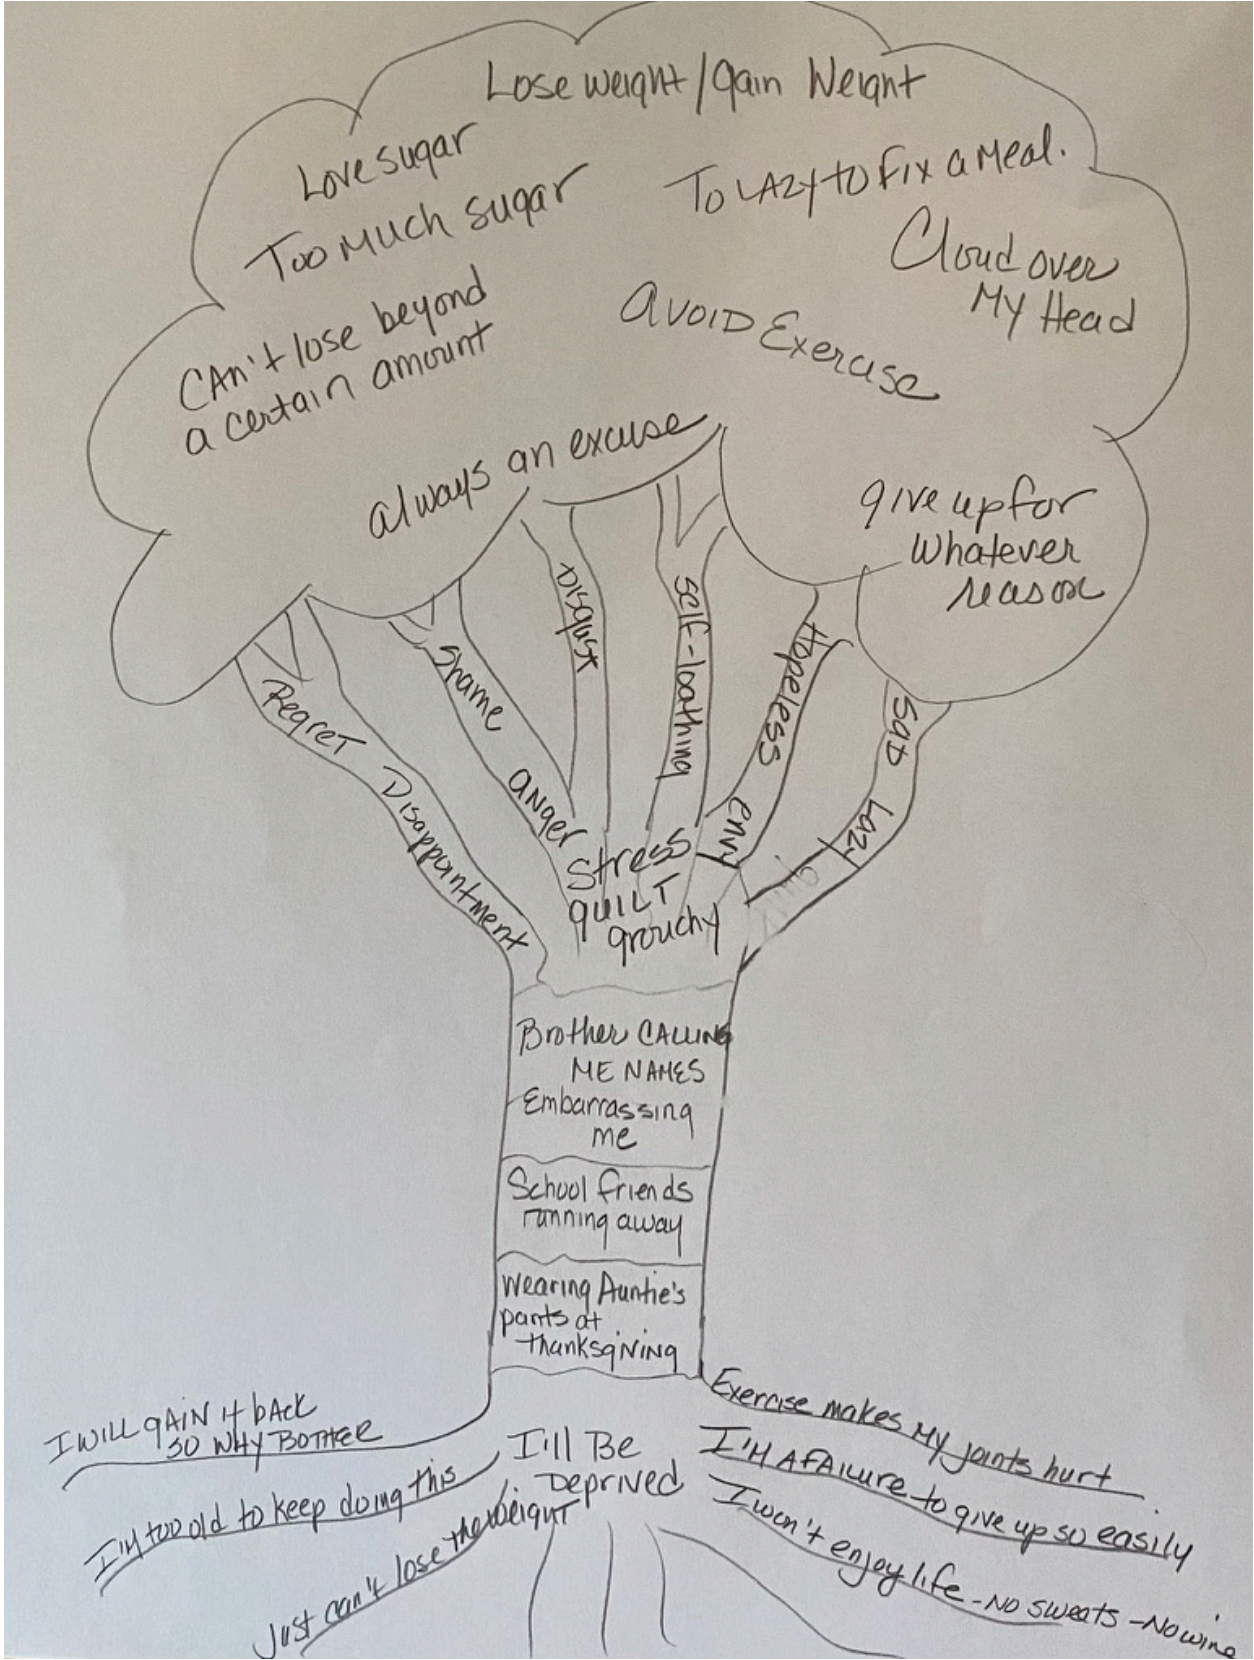 Lose weight/gain Weight
Love sugar
Too Much sugar
To LAZY to Fix a Meal.
Cloud over
My Head
CAn't lose beyond
a certain amount
AVOID Exercise
always an excuse
give up for
Whatever
reason
Regret
Disappointment
Shame
anger
Disgust
Self-loathing
Hopeless
envy
Sad
Lazy
Stress
guilt
grouchy
Brother CALLING
ME NAMES
Embarrassing
me
School friends
running away
Wearing Auntie's
pants at
thanksgiving
I WILL gAIN it bAck
SO WHY BOTHER
I'm too old to keep doing this
Just can't lose the Weight
I'll Be
Deprived
Exercise makes My joints hurt
I'M A FAILURE to give up so easily
I won't enjoy life - NO sweats - No wine